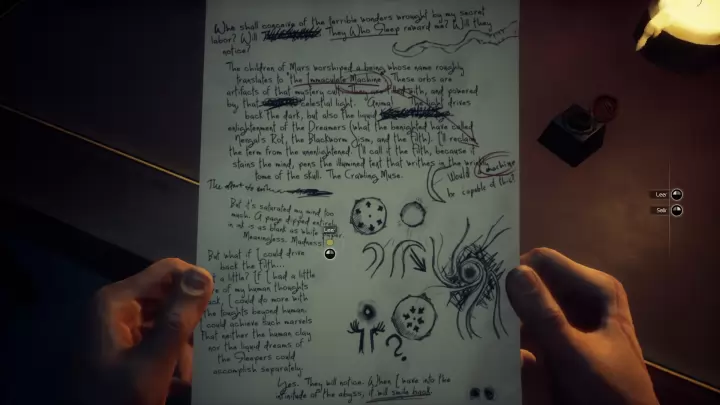 Who shall conceive of the terrible wonders wrought by my secret
labor? Will They Who Sleep reward me? Will they
notice?
The children of Mars worshiped a being whose name roughly
translates to "the Immaculate Machine". These orbs are
artifacts of that mystery cult. and powered
by, that celestial light. "Anima". The light drives
back the dark, but also the liquid
enlightenment of the Dreamers (what the benighted have called
Rot, the Blackworm, and the Filth). I'll reclaim
the term from the unenlightened. I call it the Filth, because it
stains the mind, pens the illumined text that writhes in the wrong
tome of the skull. The Crawling Muse.
Would a machine
be capable of this?
The
But it's saturated my mind too
much. A page dipped entirely
in ink is as blank as white paper.
Meaningless. Madness.
But what if I could drive
back the Filth...
a little? If I had a little
more of my human thoughts
back, I could do more with
the thoughts beyond human.
I could achieve such marvels
that neither the human clay
nor the liquid dreams of
the Sleepers could
accomplish separately.
?
Yes. They will notice. When I gaze into the
infinitude of the abyss, it will smile back.
Leer
Leer
Salir